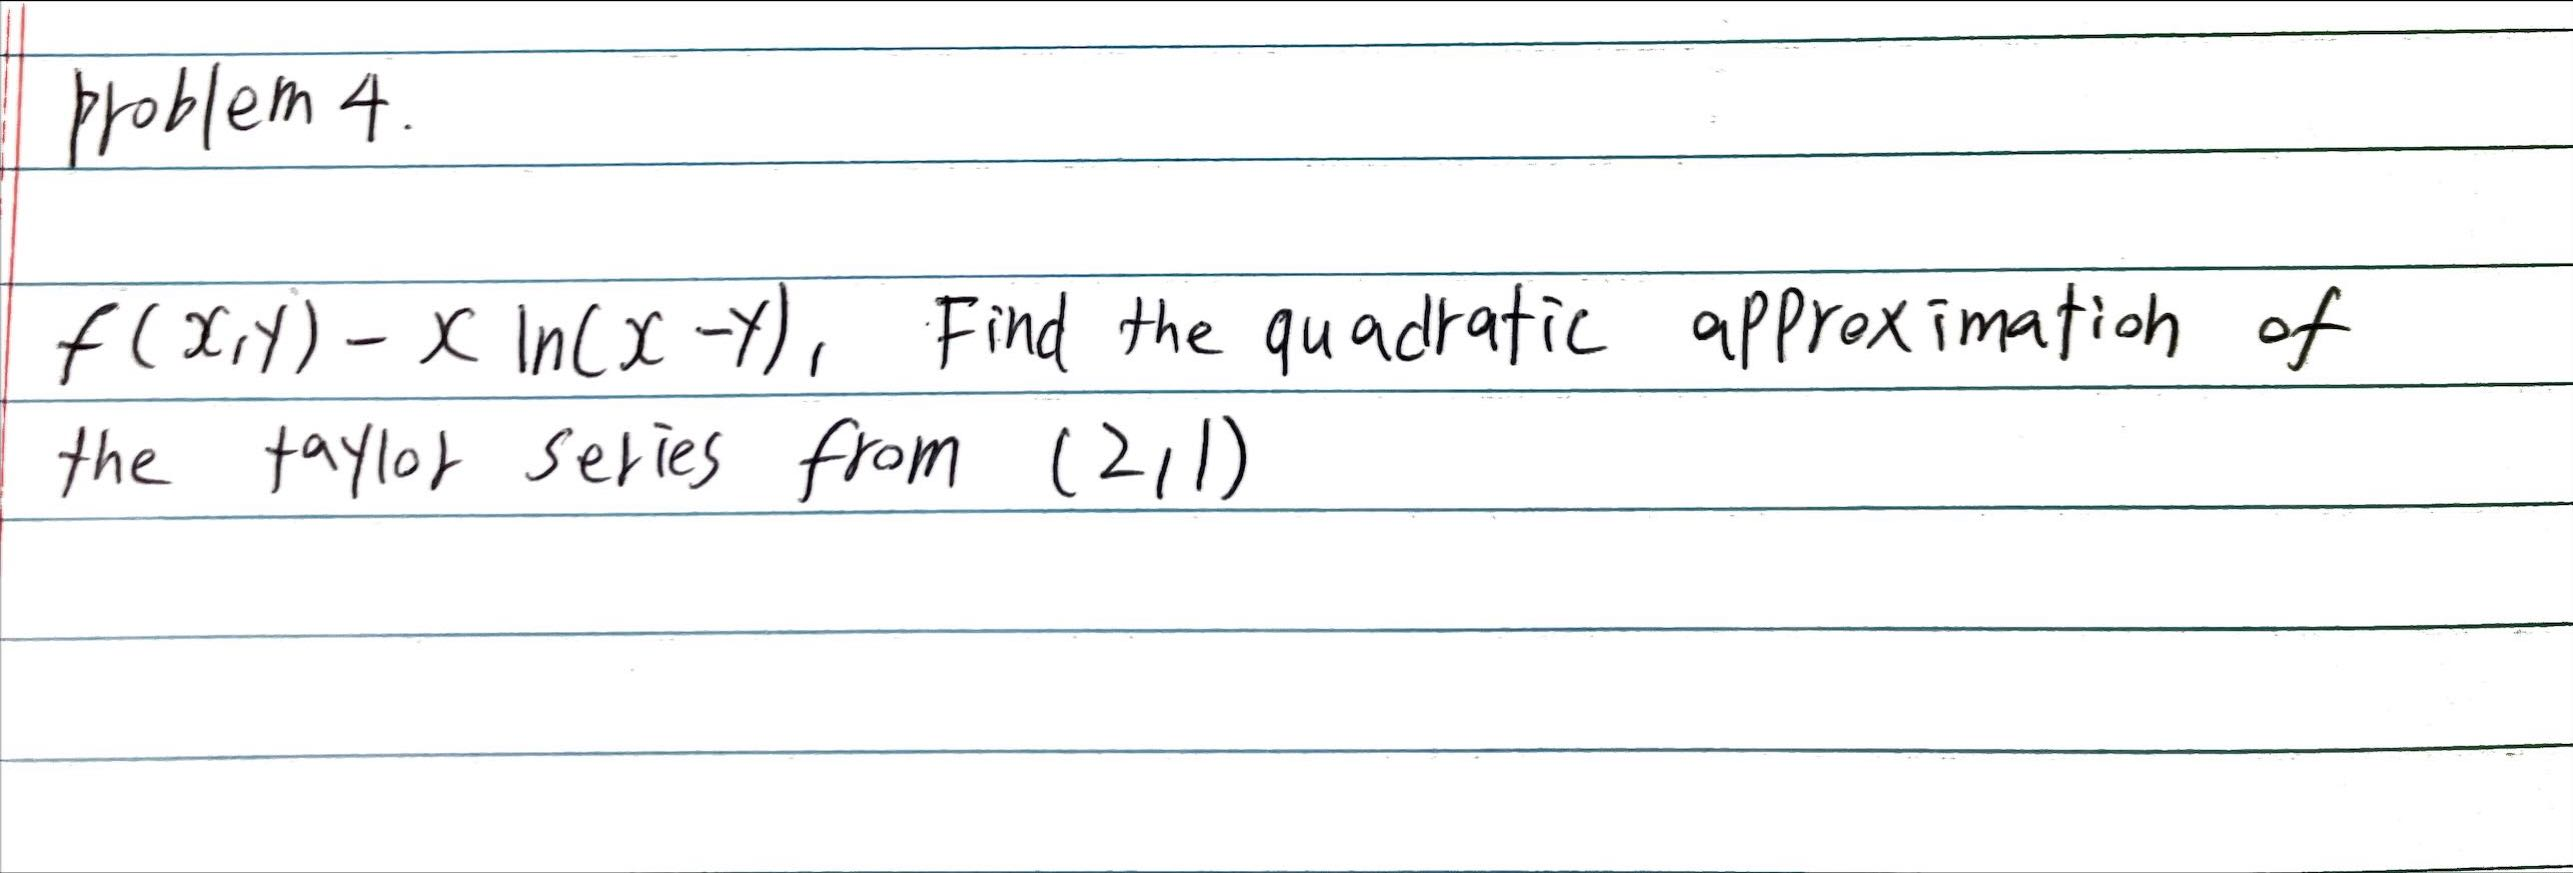 problem 4.
f(x,y) - x ln(x-y), Find the quadratic approximation of
the taylor series from (2,1)